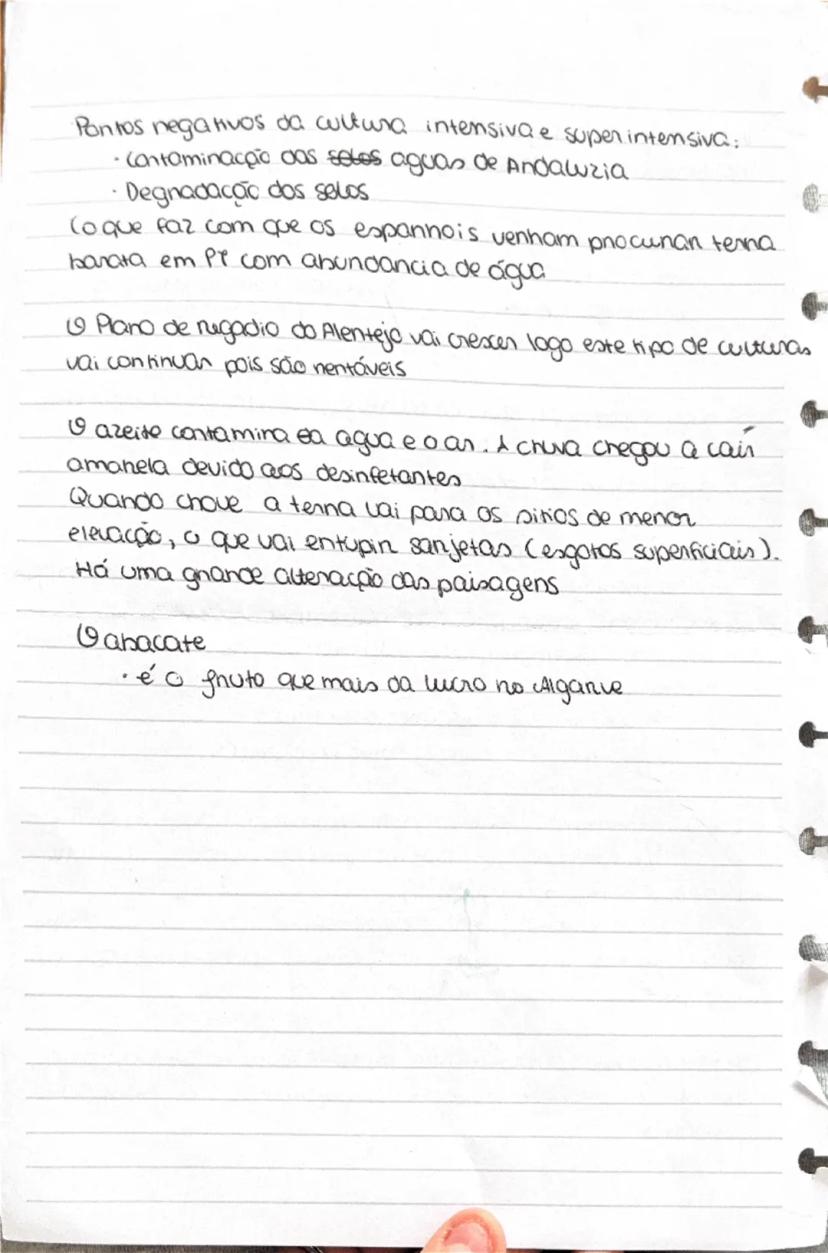 Pontos negativos da cultura intensiva e superintensiva:
· Contaminacção das ~~solos~~ aguas de Andaluzia
· Degradacção dos solos
(o que faz com que os espanhois venham procurar terra
barata em PT com abundancia de água
O Plano de regadio do Alentejo vai crescer logo este tipo de culturas
vai continuar pois são rentáveis
O azeite contamina a agua e o ar. A chuva chegou a cair
amarela devido aos desinfetantes
Quando chove a terra vai para os sitios de menor
elevacção, o que vai entupir sarjetas (esgotos superficiais).
Há uma grande alteracção das paisagens
O abacate
· é o fruto que mais da lucro no Algarve